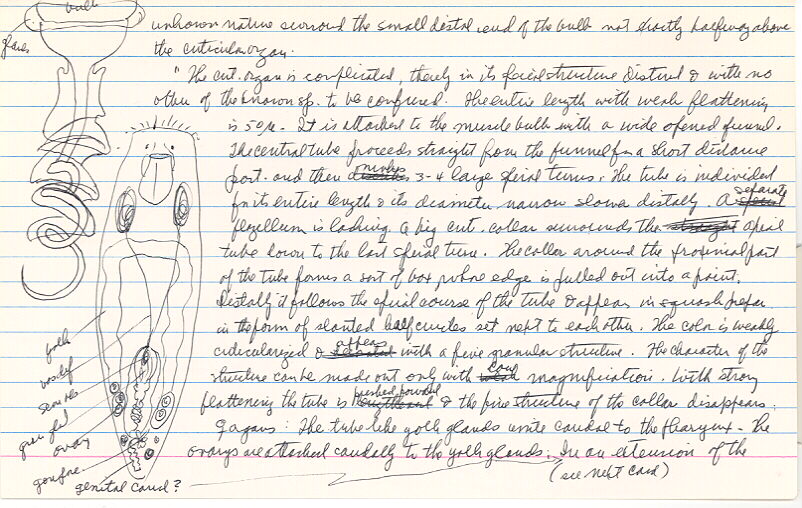 bulb
unknown nature surround the small distal end of the bulb not exactly halfway above
the cuticular organ.
"The cut. organ is complicated, thereby in its special structure distinct & with no
other of the known sp. to be confused. The entire length with weak flattening
is 50µ. It is attached to the muscle bulb with a wide opened funnel.
The central tube proceeds straight from the funnel for a short distance
post. and then makes 3-4 large spiral turns. The tube is undivided
for its entire length & its diameter narrow slower distally. A separate
flagellum is lacking. A big cut. collar surrounds the apical
tube down to the last spiral turn. The collar around the proximal part
of the tube forms a sort of box, whose edge is pulled out into a point.
Distally it follows the spiral course of the tube & appears in squash prepar.
in the form of slanted half circles set next to each other. The color is weakly
cuticularized & appears with a fine granular structure. The character of the
structure can be made out only with magnification. With strong
flattening the tube is pushed forward & the fine structure of the collar disappears.
♀ organs: The tube like yolk glands unite caudal to the pharynx. The
ovarys are attached caudally to the yolk glands. In an extension of the
(see next card)
yolk
ovary
gonopore
genital canal?